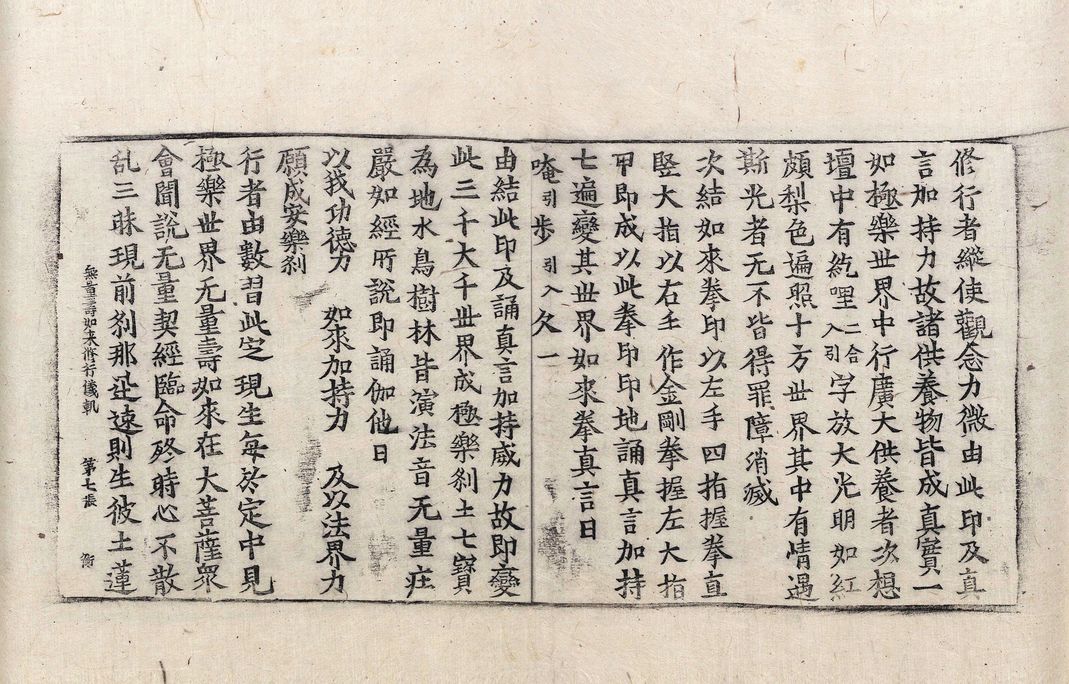 修行者縱使觀念力微由此印及真
言加持力故諸供養物皆成真實一
如極樂世界中行廣大供養者次想
壇中有紇哩二合引入字放大光明如紅
頗梨色遍照十方世界其中有情遇
斯光者无不皆得罪障消滅
次結如來拳印以左手四指握拳直
竪大指以右手作金剛拳握左大指
甲即成以此拳印印地誦真言加持
七遍變其世界如來拳真言曰
唵引步引入欠一
由結此印及誦真言加持威力故即變
此三千大千世界成極樂刹土七寶
為地水鳥樹林皆演法音无量庄
嚴如經所說即誦伽他曰
以我功德力 如來加持力 及以法界力
願成安樂刹
行者由數習此定現生每於定中見
極樂世界无量壽如來在大菩薩眾
會聞說无量契經臨命終時心不散
乱三昧現前刹那迅速則生彼土蓮
無量壽如来修行儀軌 第七張 衡